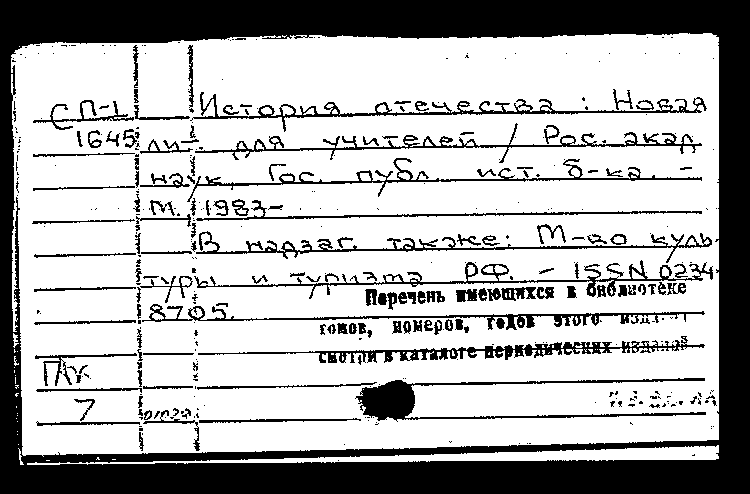 С П-1 История отечества : Новая
1645 лит. для учителей / Рос. акад
наук, Гос. публ. ист. б-ка. -
М. 1983-
В надзаг. также: М-во куль-
туры и туризма РФ. - ISSN 0234-
8705.
Перечень имеющихся в библиотеке
томов, номеров, годов этого
смотри в каталоге периодических изданий
7